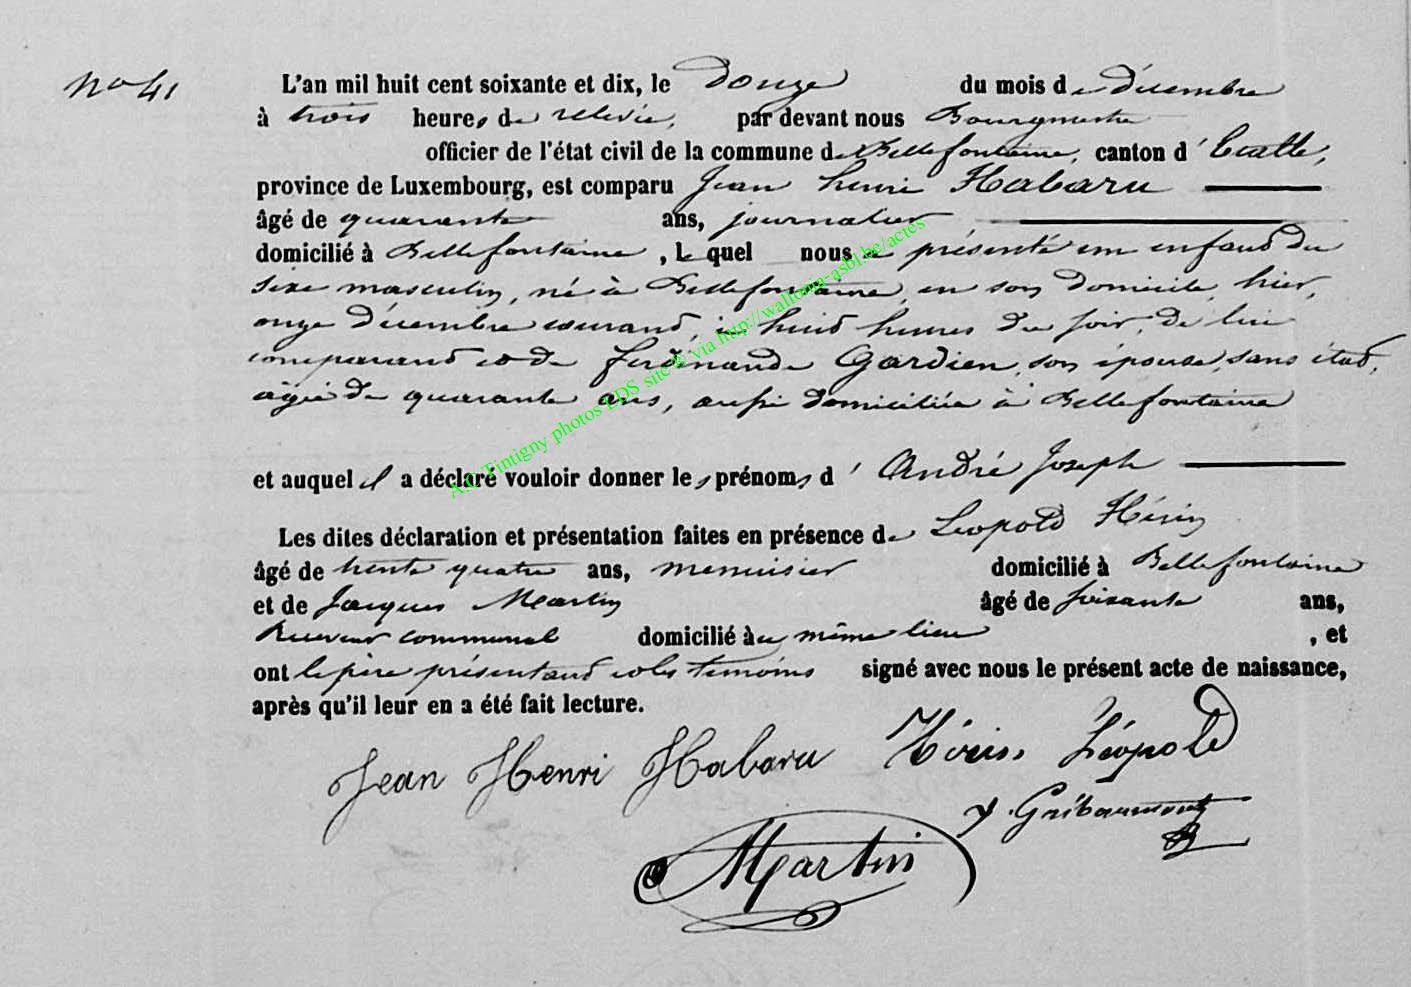 No 41
L'an mil huit cent soixante et dix, le Douze du mois de Décembre
à trois heures de relevée, par devant nous Bourgmestre
officier de l'état civil de la commune de Bellefontaine, canton d'Etalle,
province de Luxembourg, est comparu Jean henri Habaru
âgé de quarante ans, journalier
domicilié à Bellefontaine, Lequel nous a présenté un enfant du
sexe masculin, né à Bellefontaine, en son domicile, hier,
onze Décembre courant, à huit heures du soir, de lui
comparant et de Ferdinande Gardien, son épouse, sans état,
âgée de quarante ans, aussi domiciliée à Bellefontaine
et auquel il a déclaré vouloir donner les prénoms d'André Joseph
Les dites déclaration et présentation faites en présence de Léopold
âgé de trente quatre ans, menuisier domicilié à Bellefontaine
et de Jacques Martin âgé de soixante ans,
Receveur communal domicilié au même lieu, et
ont le père présentant et les témoins signé avec nous le présent acte de naissance,
après qu'il leur en a été fait lecture.
Jean Henri Habaru Léopold
J. Gribaumont
Martin
A.C. Tintigny photos LDS site & via http://wallonia-asbl.be/actes